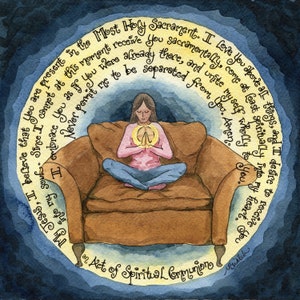 My Jesus, I believe that You are present in the Most Holy Sacrament. I love You above all things, and I desire to receive You
into my soul. Since I cannot at this moment receive You sacramentally, come at least spiritually into my heart.
I embrace You as if You were already there, and unite myself wholly to You.
Never permit me to be separated from You. Amen.
an Act of Spiritual Communion